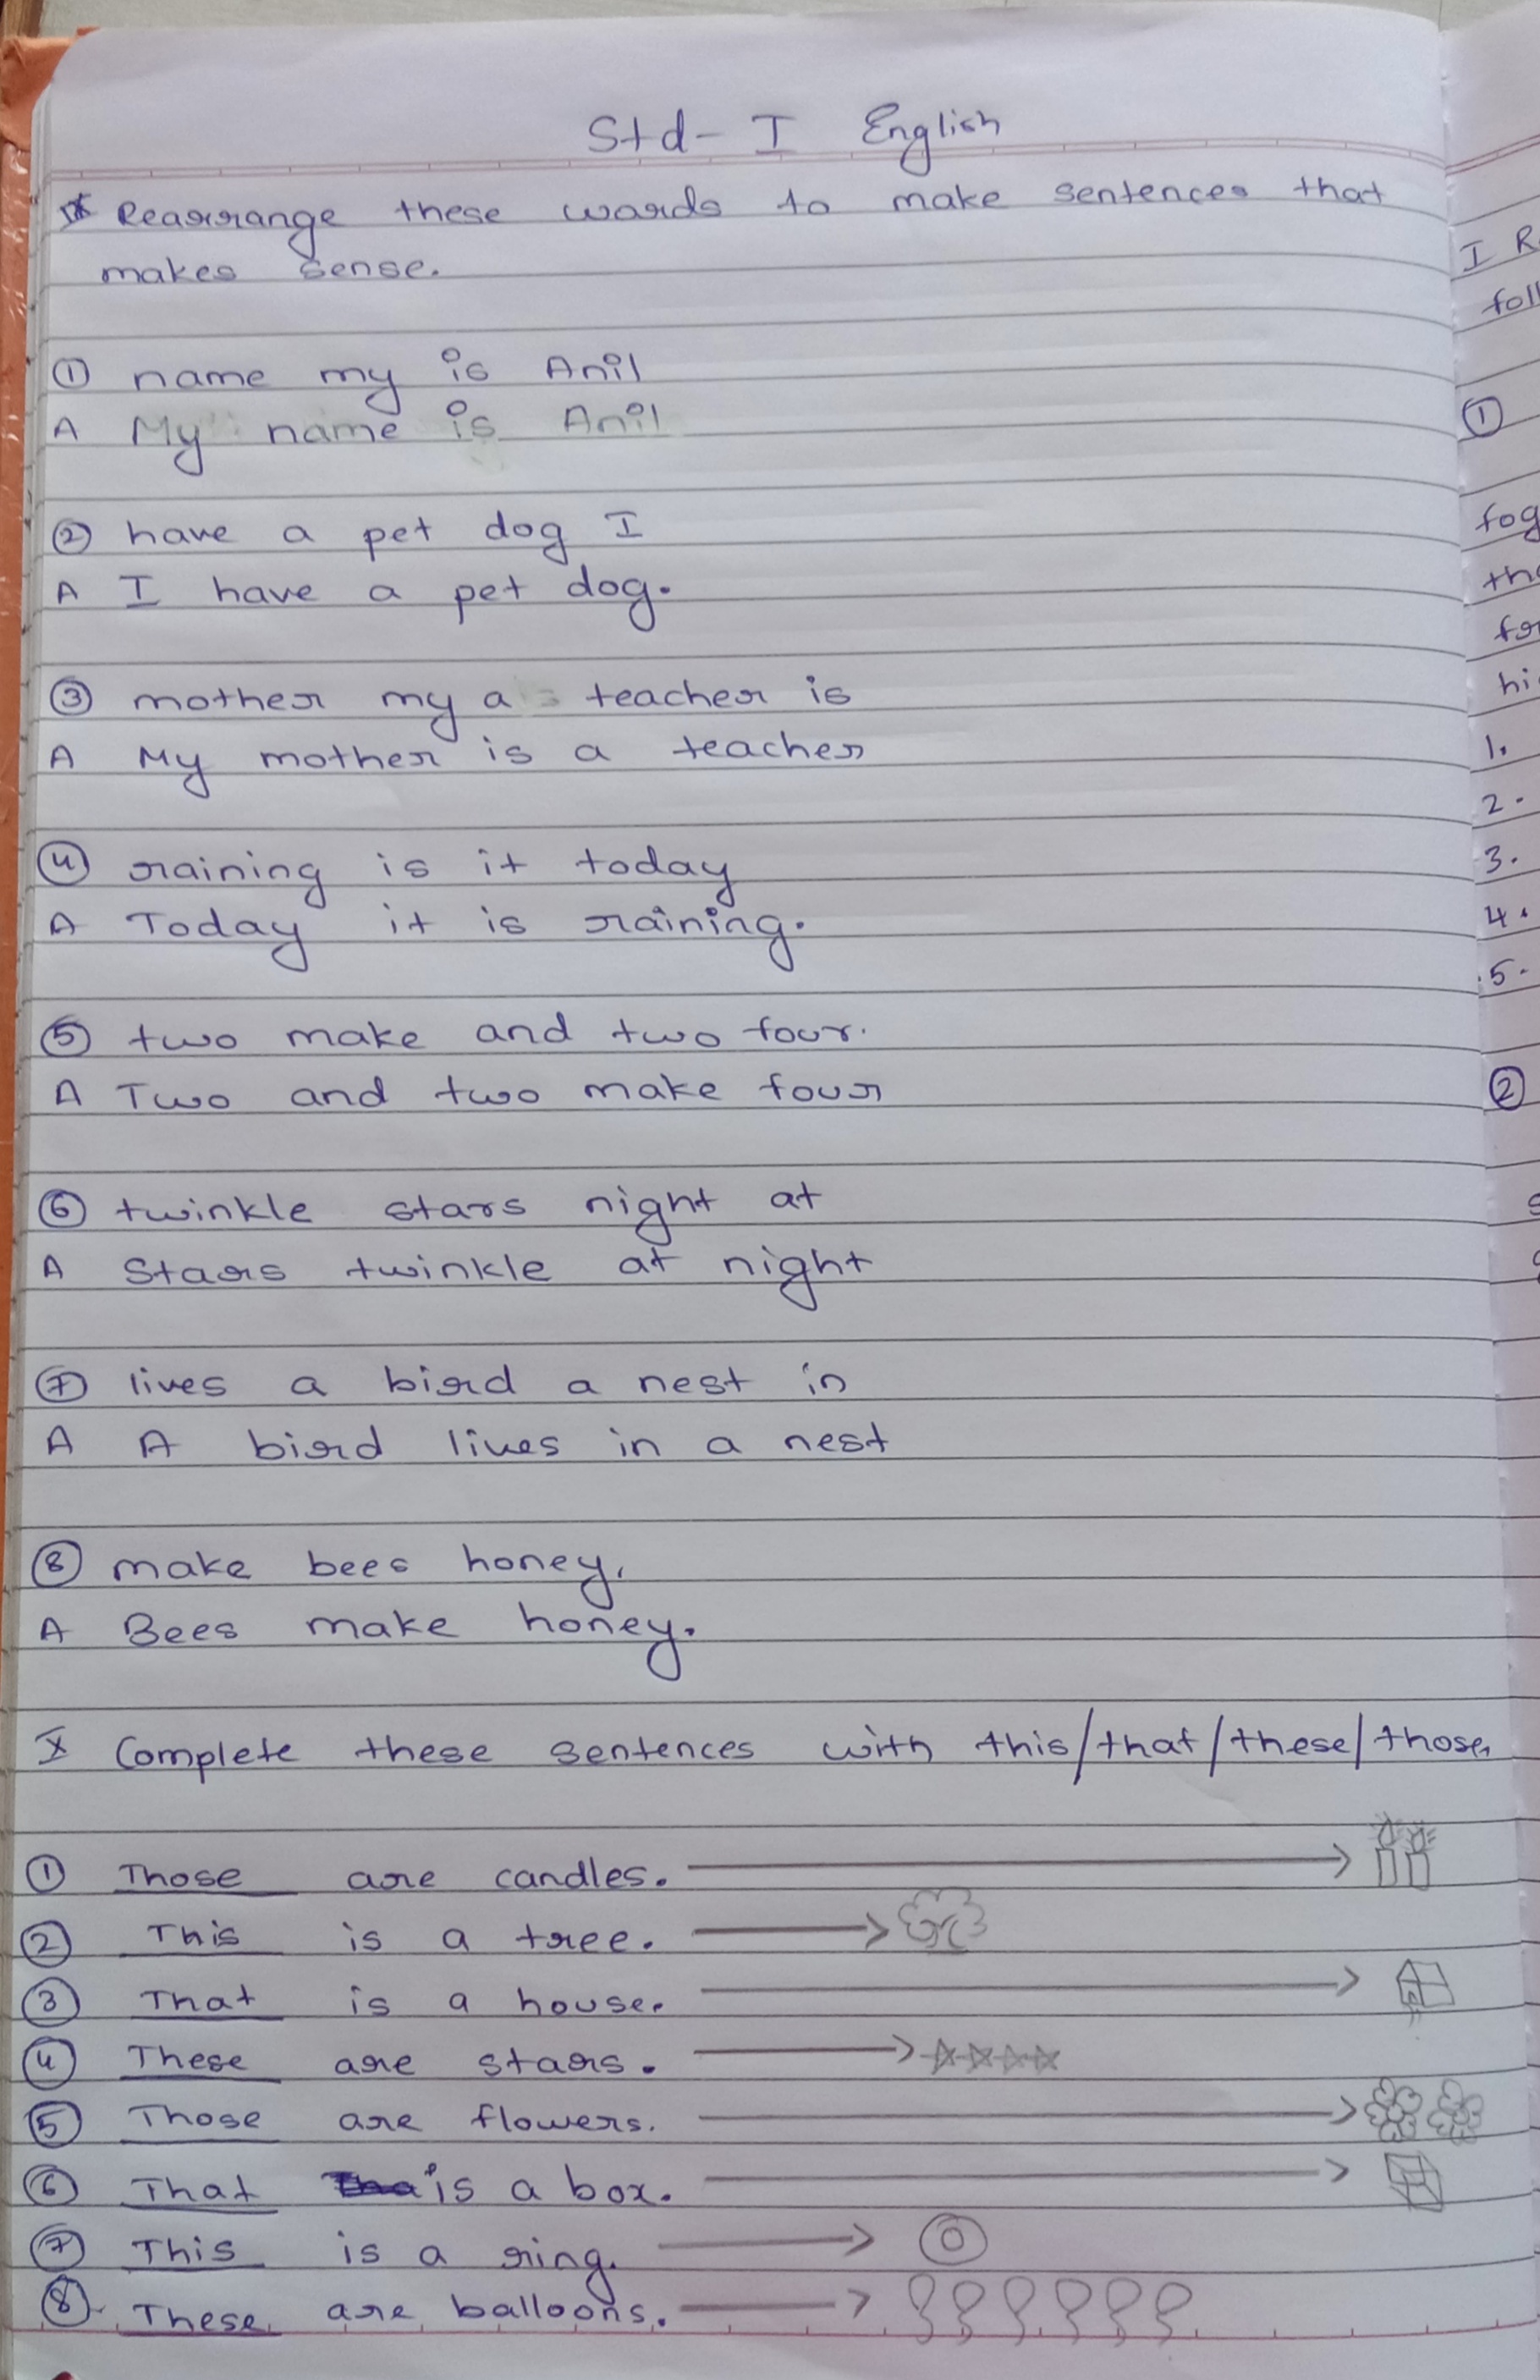 Std- I English
Rearrange these words to make sentences that
makes sense.
① name my is Anil
A My name is Anil
② have a pet dog I
A I have a pet dog.
③ mother my a teacher is
A My mother is a teacher
④ raining is it today
A Today it is raining.
⑤ two make and two four.
A Two and two make four
⑥ twinkle stars night at
A Stars twinkle at night
⑦ lives a bird a nest in
A A bird lives in a nest
⑧ make bees honey.
A Bees make honey.
Complete these sentences with this/that/these/those.
① Those are candles.
② This is a tree.
③ That is a house.
④ These are stars.
⑤ Those are flowers.
⑥ That is a box.
⑦ This is a ring.
⑧ These are balloons.
I R
foll
①
fog
the
for
hi
1.
2.
3.
4.
5.
②